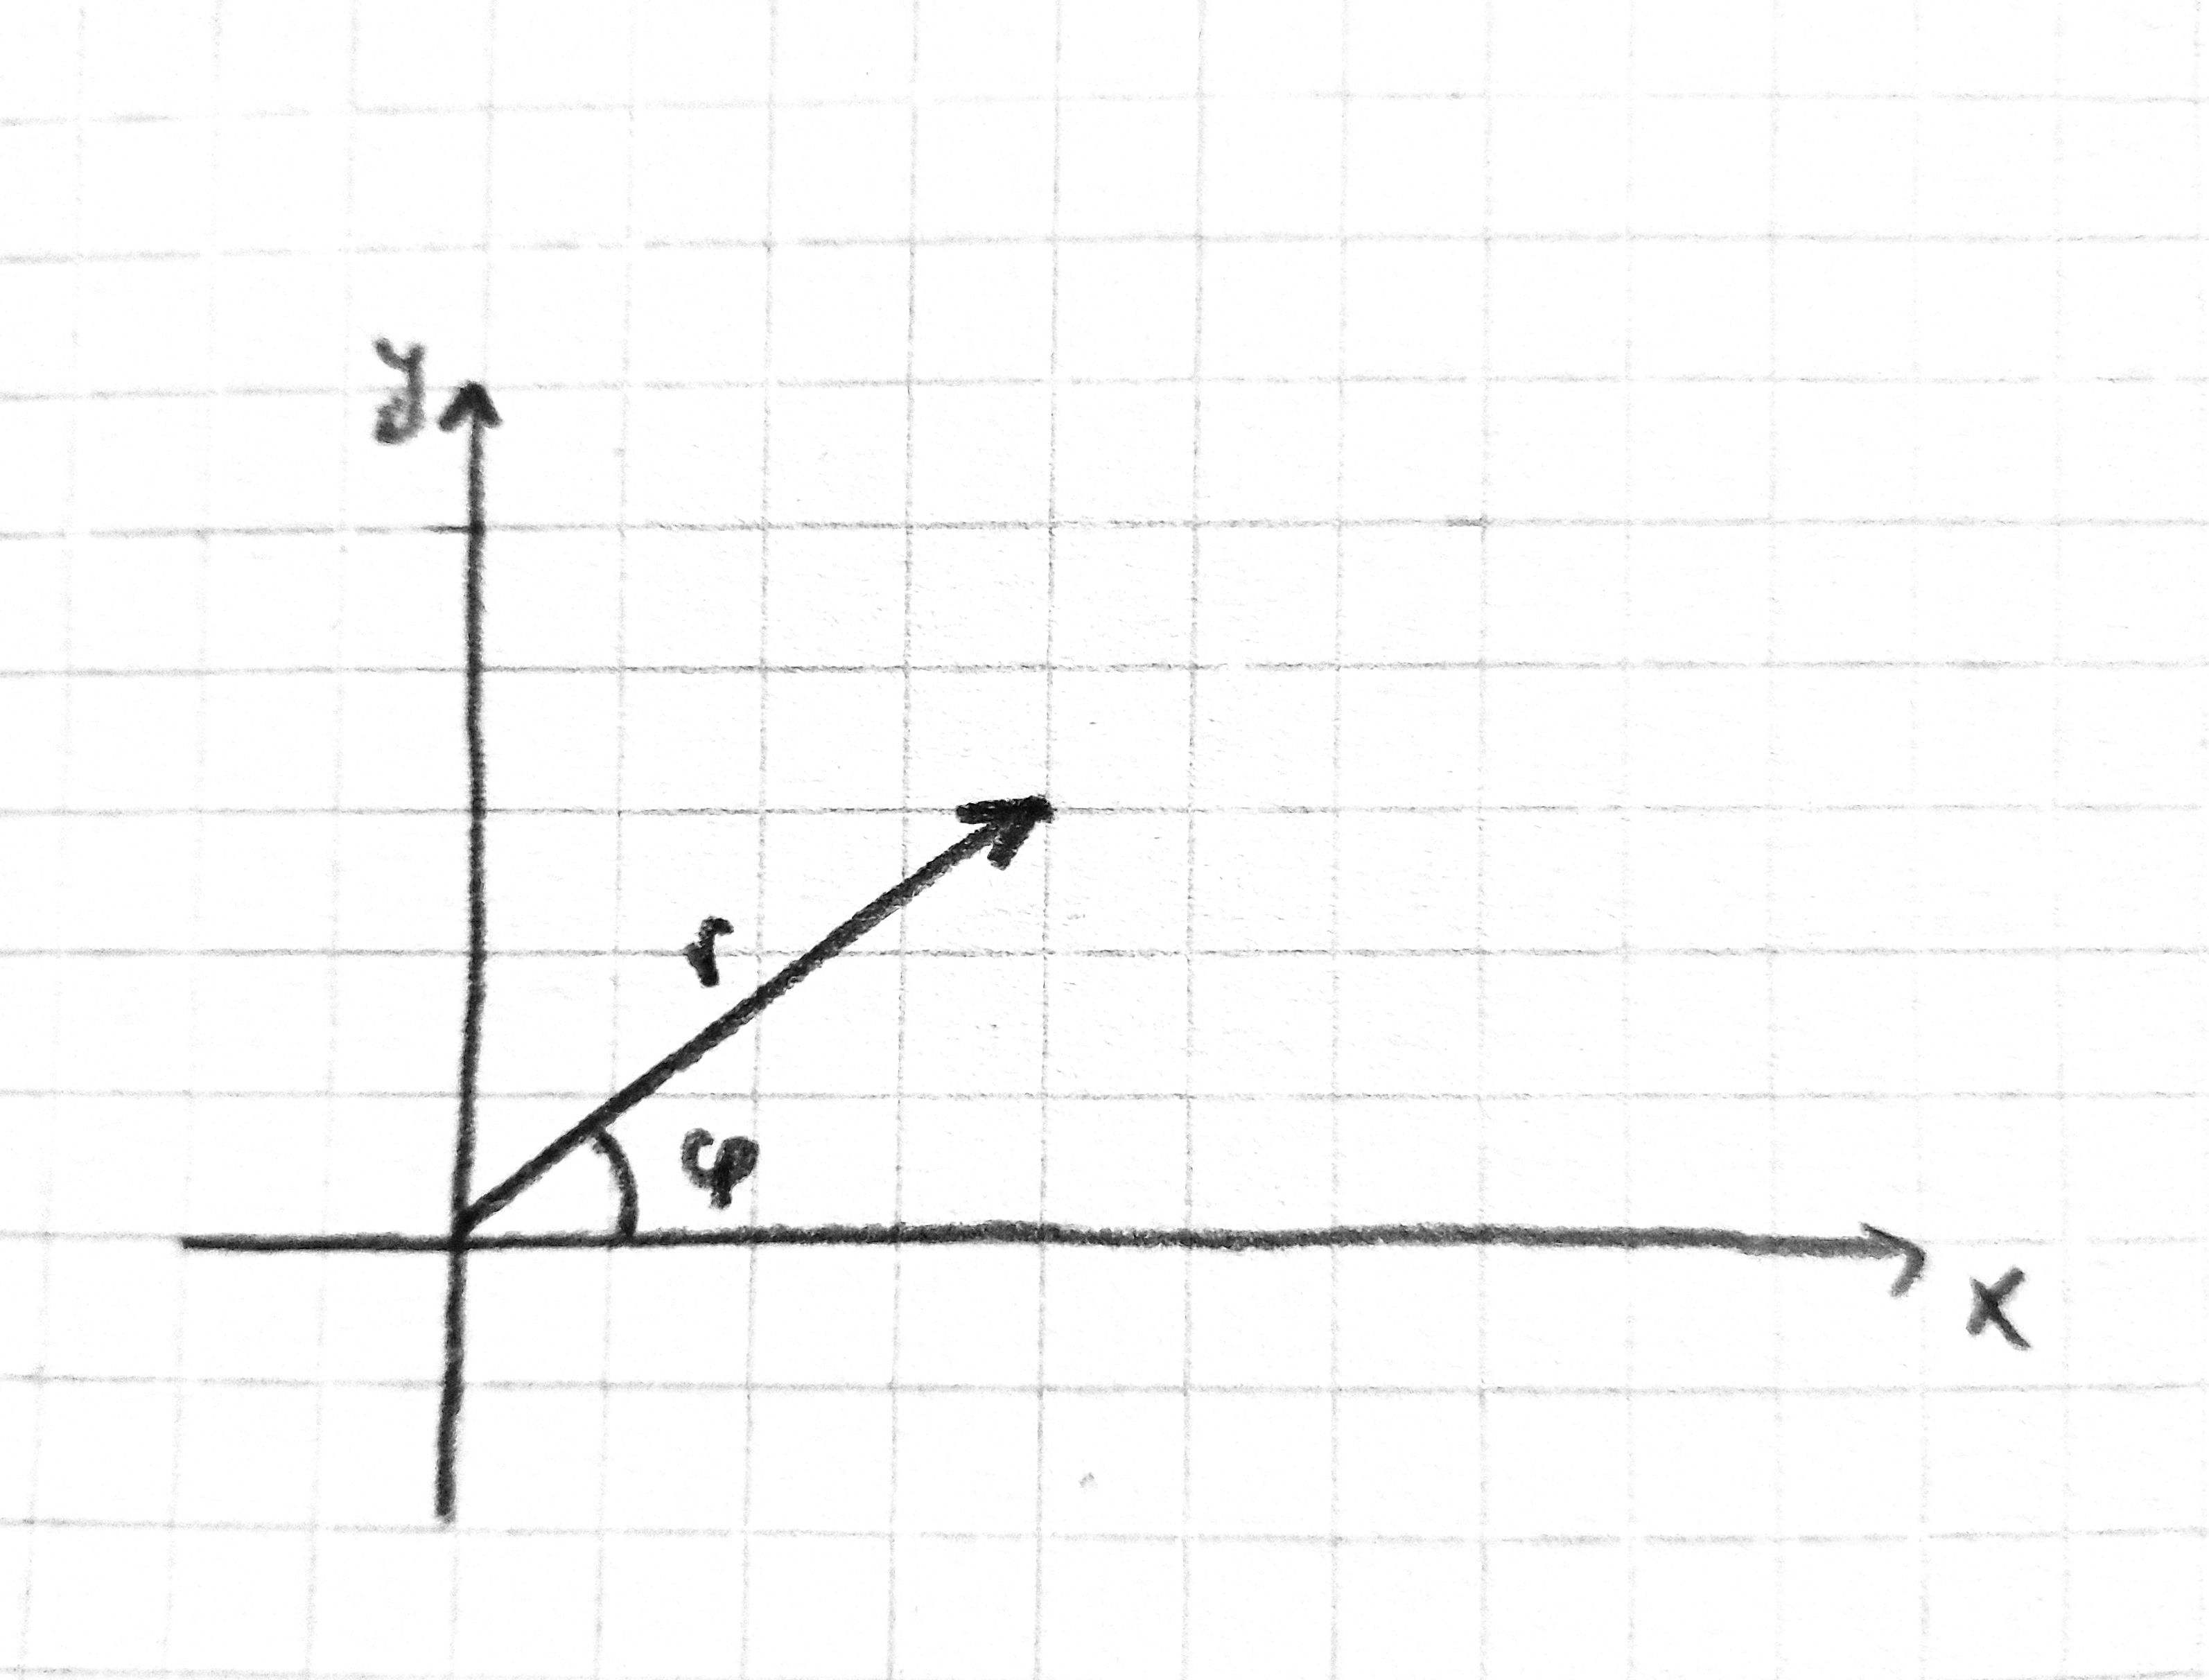 y
r
φ
x